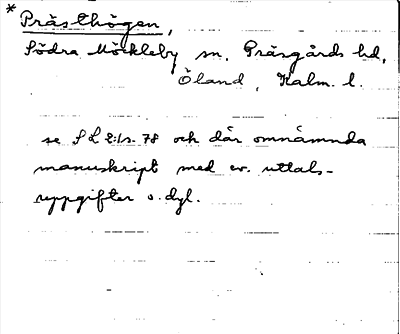 * Prästhögen,
Södra Möckleby sn, Gräsgårds hd,
Öland, Kalm. l.
se SL 2:1 s. 78 och där omnämnda
manuskript med ev. uttals-
uppgifter o. dyl.